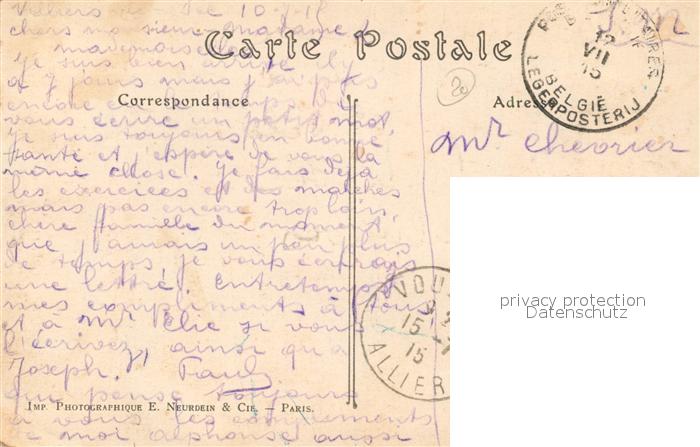 Villiers le Sec 10-7-15
chers monsieur madame et
mademoiselle
je suis bien arrivé il y
a 7 jours mais j'ai pas
encore le temps de
vous écrire un petit mot,
je suis toujours en bonne
santé et j'espère de vous la
même chose. je fais déjà
les exercices et des marches
mais pas encore trop loin,
chère famille du moment
que j'aurais un peu plus
de temps je vous écrirais
une lettre. Entretemps
mes compliments à tous
et à Mr Elie si vous
l'écrivez, ainsi qu'a
Joseph. Paul
qui pense toujours
à vous les compliments
de moi alphonse aussi
Carte Postale
Correspondance
Adresse
S.M
20
12
VII
15
BELGIË
LEGERPOSTERIJ
Mr Chevrier
VOU
15
15
ALLIER
privacy protection
Datenschutz
IMP. PHOTOGRAPHIQUE E. NEURDEIN & CIE. — PARIS.